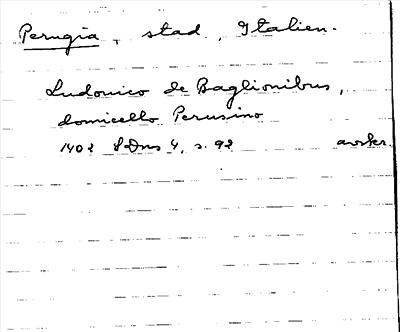 Perugia, stad, Italien.
Ludovico de Baglionibus,
domicello Perusino
1402 SDns 4, s. 92 avskr.